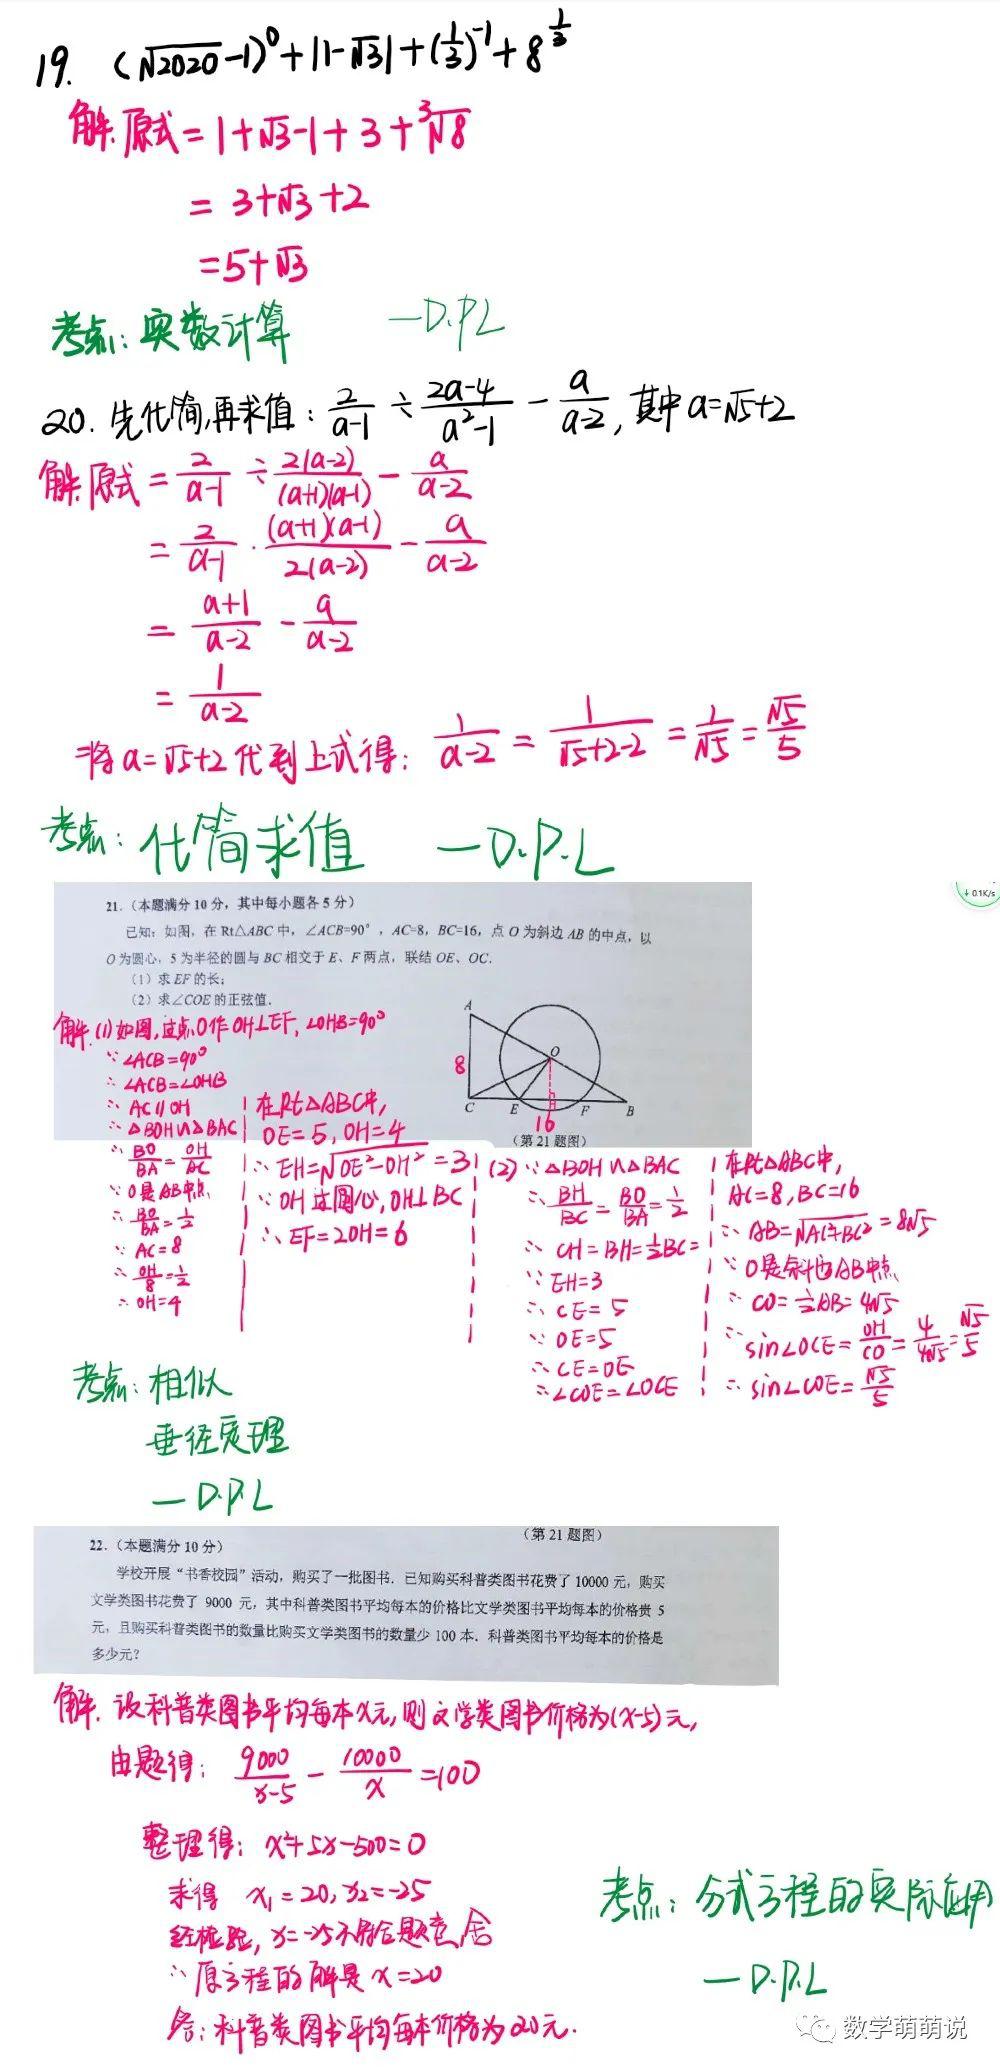 19. (√2020-1)⁰+|1-√3|+(1/3)⁻¹+8^(1/3)
解:原式=1+√3-1+3+³√8
=3+√3+2
=5+√3
考点:实数计算 —D.P.L
20. 先化简,再求值: 2/(a-1) ÷ (2a-4)/(a²-1) - a/(a-2), 其中a=√5+2
解:原式=2/(a-1) ÷ 2(a-2)/(a+1)(a-1) - a/(a-2)
=2/(a-1) · (a+1)(a-1)/2(a-2) - a/(a-2)
=(a+1)/(a-2) - a/(a-2)
=1/(a-2)
将a=√5+2代到上式得: 1/(a-2)=1/(√5+2-2)=1/√5=√5/5
考点:化简求值 —D.P.L
↓0.1K/s
21.(本题满分10分,其中每小题各5分)
已知:如图,在Rt△ABC中,∠ACB=90°,AC=8,BC=16,点O为斜边AB的中点,以
O为圆心,5为半径的圆与BC相交于E、F两点,联结OE、OC.
(1)求EF的长;
(2)求∠COE的正弦值.
A
O
8
C E H F B
16
(第21题图)
解:(1)如图,过点O作OH⊥EF,∠OHB=90°
∵∠ACB=90°
∴∠ACB=∠OHB
∴AC∥OH
∴△BOH∽△BAC
∴BO/BA=OH/AC
∵O是AB中点
∴BO/BA=1/2
∵AC=8
∴OH/8=1/2
∴OH=4
在Rt△ABC中,
OE=5,OH=4
∴EH=√(OE²-OH²)=3
∵OH过圆心,OH⊥BC
∴EF=2OH=6
(2)∵△BOH∽△BAC
∴BH/BC=BO/BA=1/2
∴CH=BH=1/2BC=
∵EH=3
∴CE=5
∵OE=5
∴CE=OE
∴∠COE=∠OCE
在Rt△ABC中,
AC=8,BC=16
∴AB=√(AC²+BC²)=8√5
∵O是斜边AB中点
∴CO=1/2AB=4√5
∴sin∠OCE=OH/CO=4/4√5=√5/5
∴sin∠COE=√5/5
考点:相似
垂径定理
—D.P.L
(第21题图)
22.(本题满分10分)
学校开展“书香校园”活动,购买了一批图书.已知购买科普类图书花费了10000元,购买
文学类图书花费了9000元,其中科普类图书平均每本的价格比文学类图书平均每本的价格贵5
元,且购买科普类图书的数量比购买文学类图书的数量少100本.科普类图书平均每本的价格是
多少元?
解:设科普类图书平均每本x元,则文学类图书价格为(x-5)元,
由题得: 9000/(x-5) - 10000/x =100
整理得: x²+5x-500=0
求得 x₁=20,x₂=-25
经检验,x=-25不符合题意,舍
∴原方程的解是x=20
答:科普类图书平均每本价格为20元.
考点:分式方程的实际应用
—D.P.L
数学萌萌说